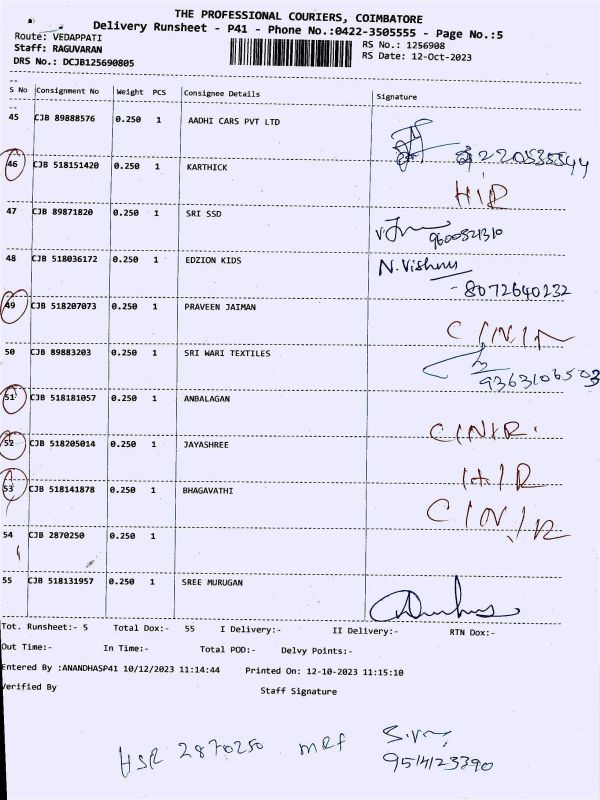 THE PROFESSIONAL COURIERS, COIMBATORE
Delivery Runsheet - P41 - Phone No.:0422-3505555 - Page No.:5
Route: VEDAPPATI RS No.: 1256908
Staff: RAGUVARAN RS Date: 12-Oct-2023
DRS No.: DCJB125690805
S No Consignment No Weight PCS Consignee Details Signature
45 CJB 89888576 0.250 1 AADHI CARS PVT LTD
46 CJB 518151420 0.250 1 KARTHICK
H/R
47 CJB 89871820 0.250 1 SRI SSD
9600821310
48 CJB 518036172 0.250 1 EDZION KIDS N.Vishnu
- 8072640232
49 CJB 518207073 0.250 1 PRAVEEN JAIMAN
50 CJB 89883203 0.250 1 SRI WARI TEXTILES
9363106503
51 CJB 518181057 0.250 1 ANBALAGAN
C/N/R.
52 CJB 518205014 0.250 1 JAYASHREE
H/R
53 CJB 518141878 0.250 1 BHAGAVATHI
C/N/R
54 CJB 2870250 0.250 1
55 CJB 518131957 0.250 1 SREE MURUGAN
Tot. Runsheet:- 5 Total Dox:- 55 I Delivery:- II Delivery:- RTN Dox:-
Out Time:- In Time:- Total POD:- Delvy Points:-
Entered By :ANANDHASP41 10/12/2023 11:14:44 Printed On: 12-10-2023 11:15:10
Verified By Staff Signature
HSR 2870250 MRF
9514123390